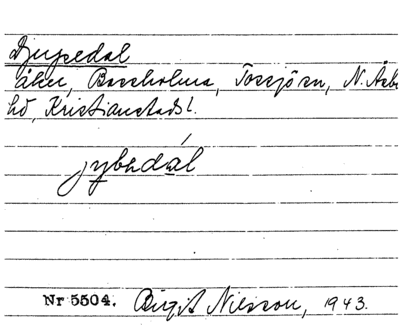 Djupedal
åker, Boxholma, Torsjö sn, N. Åsbo
hd, Kristianstads l.
jybedal
Nr 5504. Birgit Nilsson, 1943.